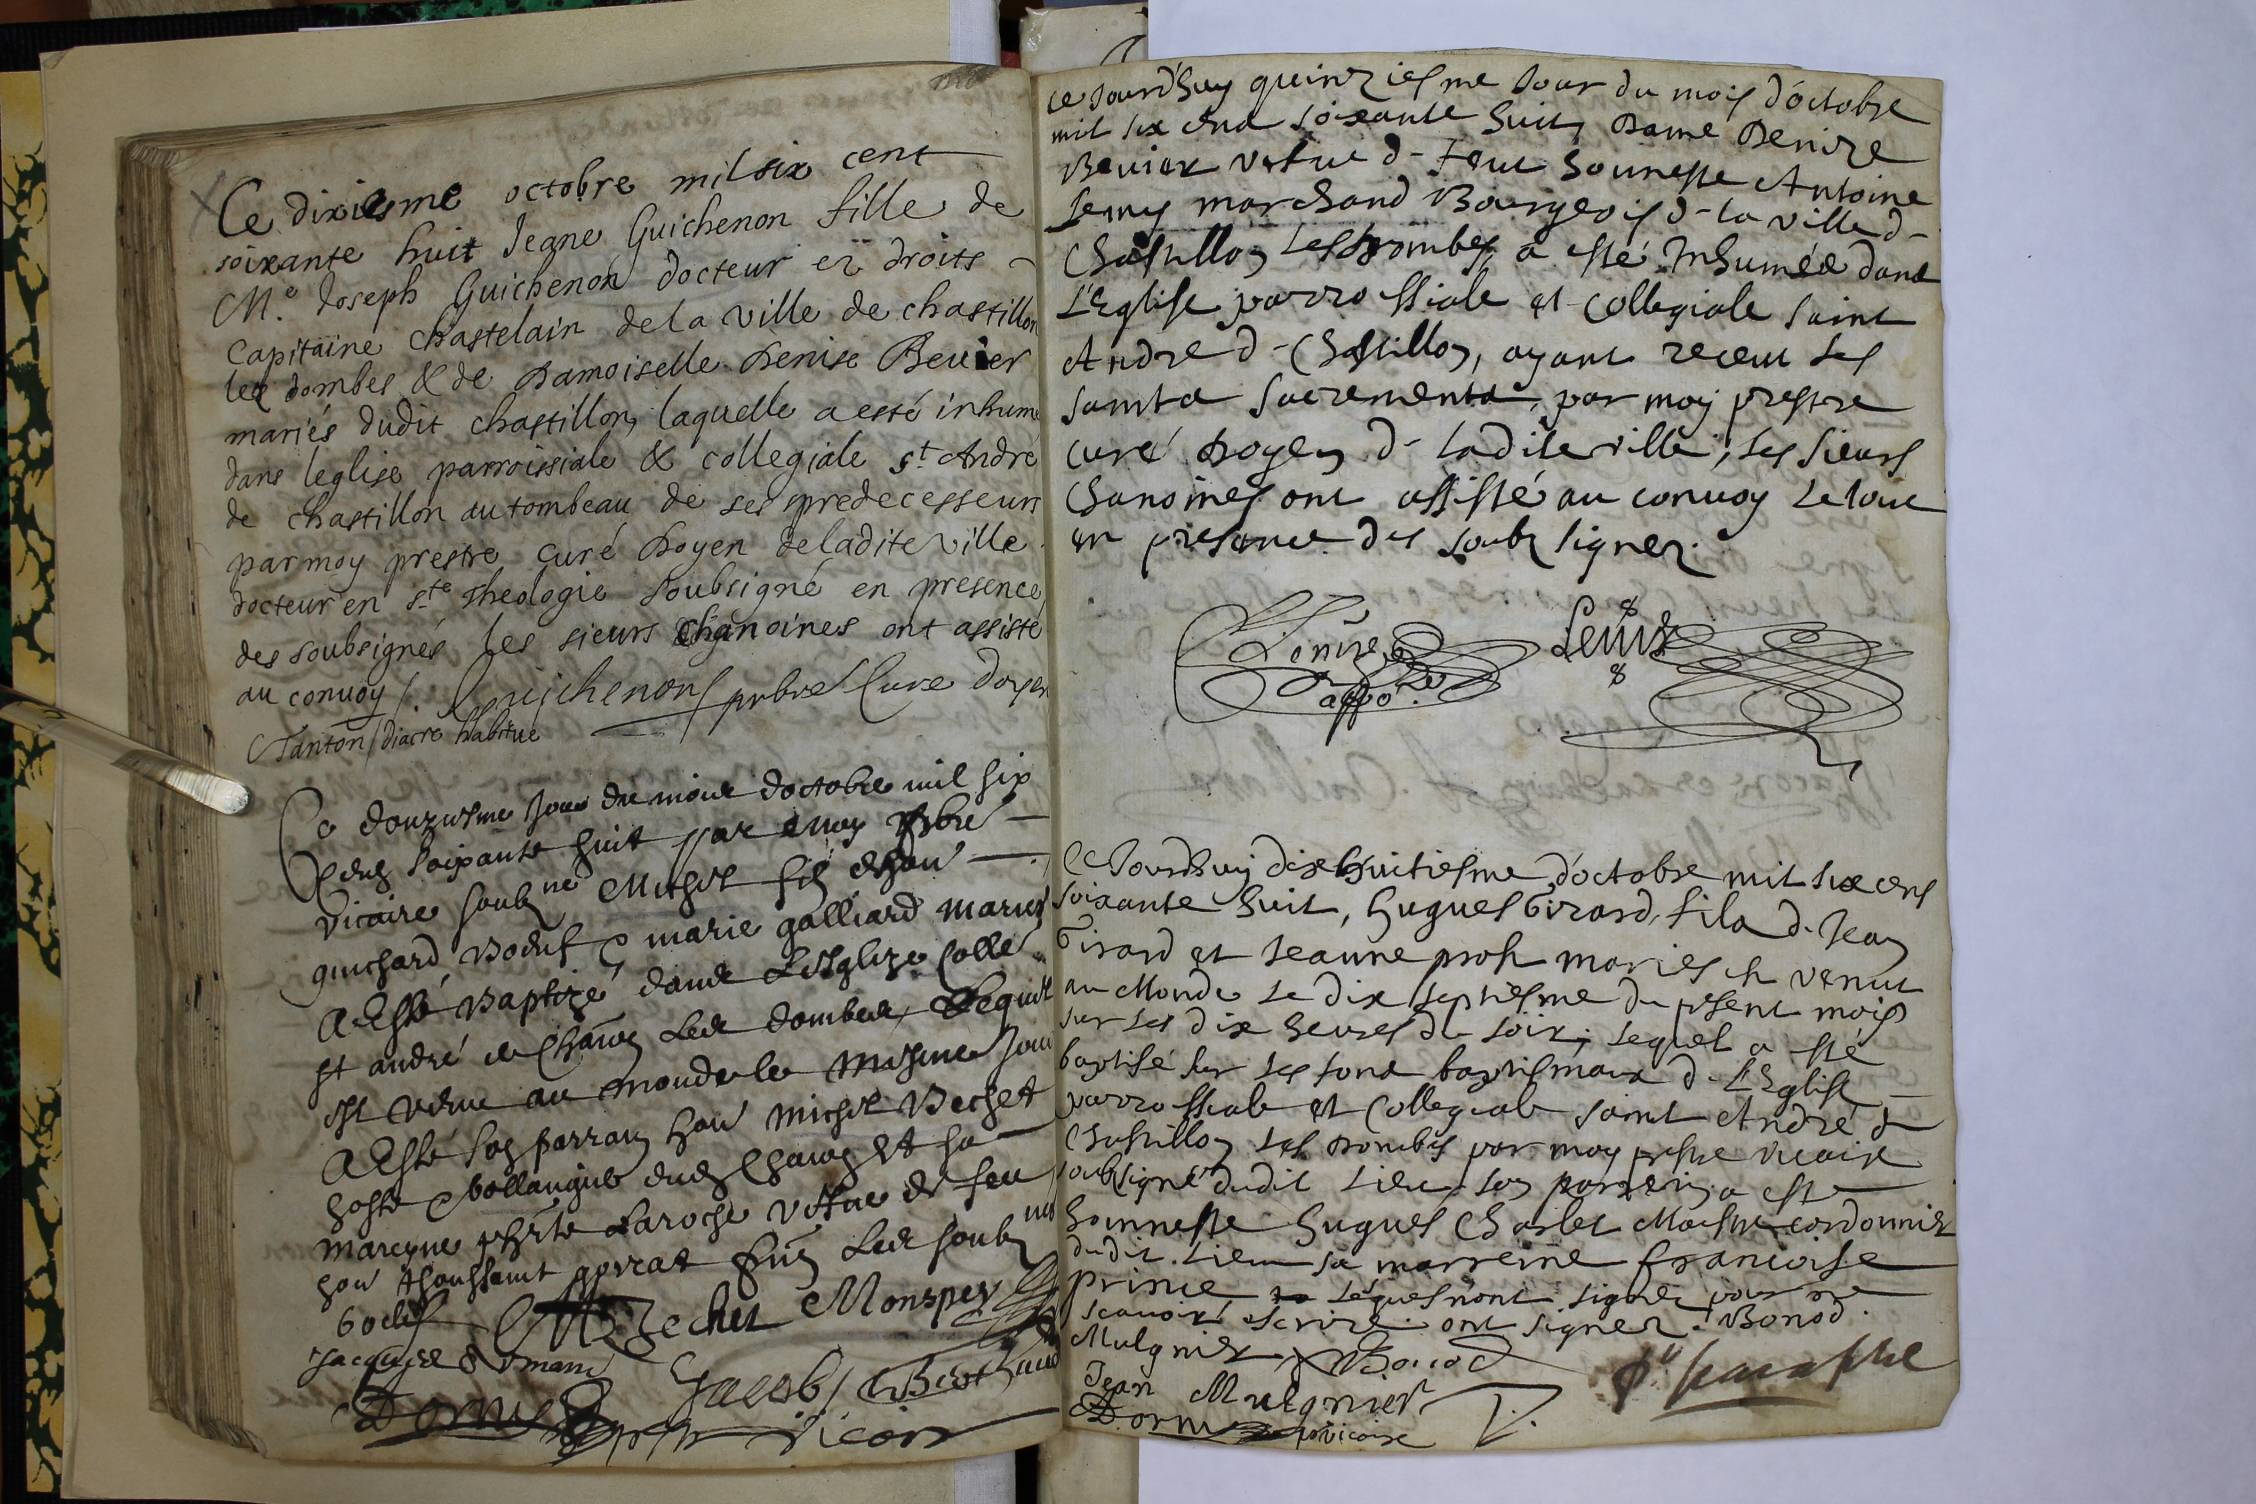 Ce dixiesme octobre mil six cent
soixante huit Jeane Guichenon fille de
M.e Joseph Guichenon docteur ez droits
Capitaine chastelain de la ville de chastillon
lez dombes & de damoiselle denise Bevier
mariés dudit chastillon, laquelle a esté inhumé
dans leglise parroissiale & collegiale st André
de chastillon au tombeau de ses predecesseurs
par moy prestre curé doyen de ladite ville
docteur en ste theologie soubsigné en presence
des soubsignés les sieurs chanoines ont assisté
au convoy /. Guichenon pbre Cure doyen
Tanton diacre habitue
Ce douziesme Jour du mois doctobre mil six
cens soixante huit par moy pbre
vicaire soubz.né Michel filz
guichard Boeuf & marie galliard mariez
A Esté Baptizé dans L'Esglize Colle
st andré de Chaton Les dombes, Lequel
est venu au monde le mesme Jour
A Esté son parrain hon Michel Bechet
hoste & bollangier dud Chaton Et sa
mareyne Laroche vefve de feu
hon thoussaint gorrat
boeuf M Bechet Monspey
Jacques
Jacob Berthaud
Dorny vicaire
ce Jourd'huy quinziesme Jour du mois d'octobre
mil six cens soixante huit, Dame Denize
Bevier vefve de feu honneste Antoine
Leny marchand Bourgeois de la ville de
Chastillon Les Dombes, a esté Inhumée dans
L'Eglise parrossiale et collegiale saint
Andre de Chastillon, ayant receu les
saints sacrements, par moy prestre
curé doyen de ladite ville, les sieurs
chanoines ont assisté au convoy Le tout
en presence des soubz signez.
appo.re
Ce Jourdhuy dix huitiesme d'octobre mil six cens
soixante huit, hugues Girard, fils de Jean
Girard et Jeanne prost mariés est venut
au Monde le dix septiesme du present mois
sur les dix heures du soir, lequel a esté
baptisé sur les fons baptismaux de L'Eglise
parrossiale et Collegiale saint André de
Chastillon les Dombes par moy prestre vicaire
soubsigné dudit Lieu son parrein a esté
honneste hugues Charlet Maistre cordonnier
dudit Lieu sa marreine francoise
prince lesquels n'ont signez pour ne
scavoir escrire ont signez. Bonod.
Mulgnier Bonod
Jean Mulgnier
Dorny vicaire